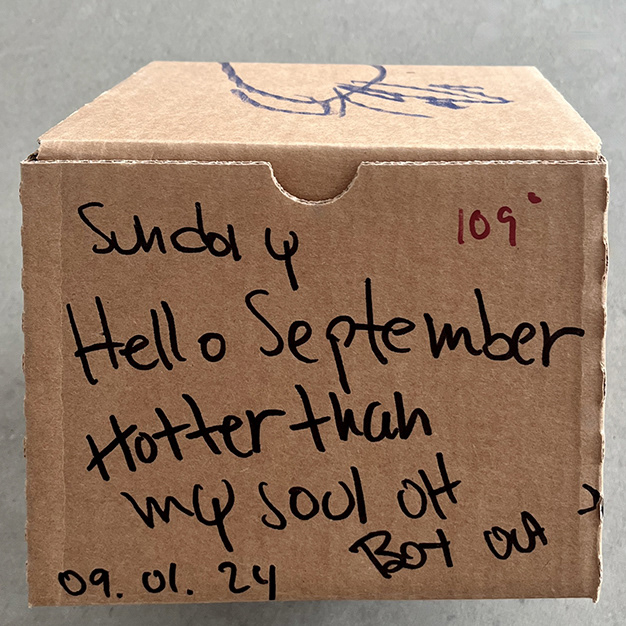 Sunday 109°
Hello September
Hotter than
my soul
Bot out
09. 01. 24